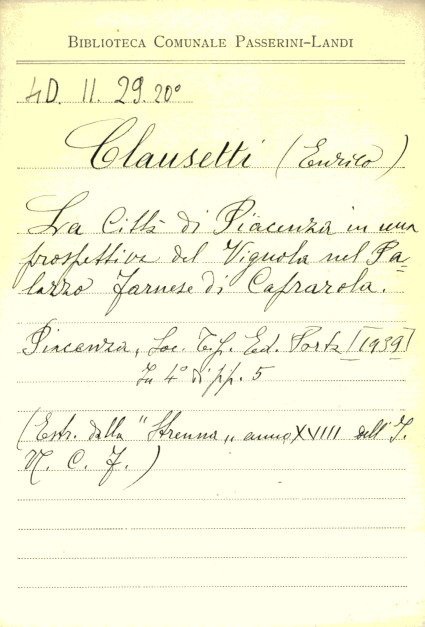 BIBLIOTECA COMUNALE PASSERINI-LANDI
4D. 11. 29. 20°
Clausetti (Enrico)
La Città di Piacenza in una
prospettiva del Vignola nel Pa=
lazzo Farnese di Caprarola.
Piacenza, Soc. Tip. Ed. Porta [1939]
In 4° di pp. 5
(Estr. dalla "Strenna„ anno XVIII dell' I.
N. C. F.)